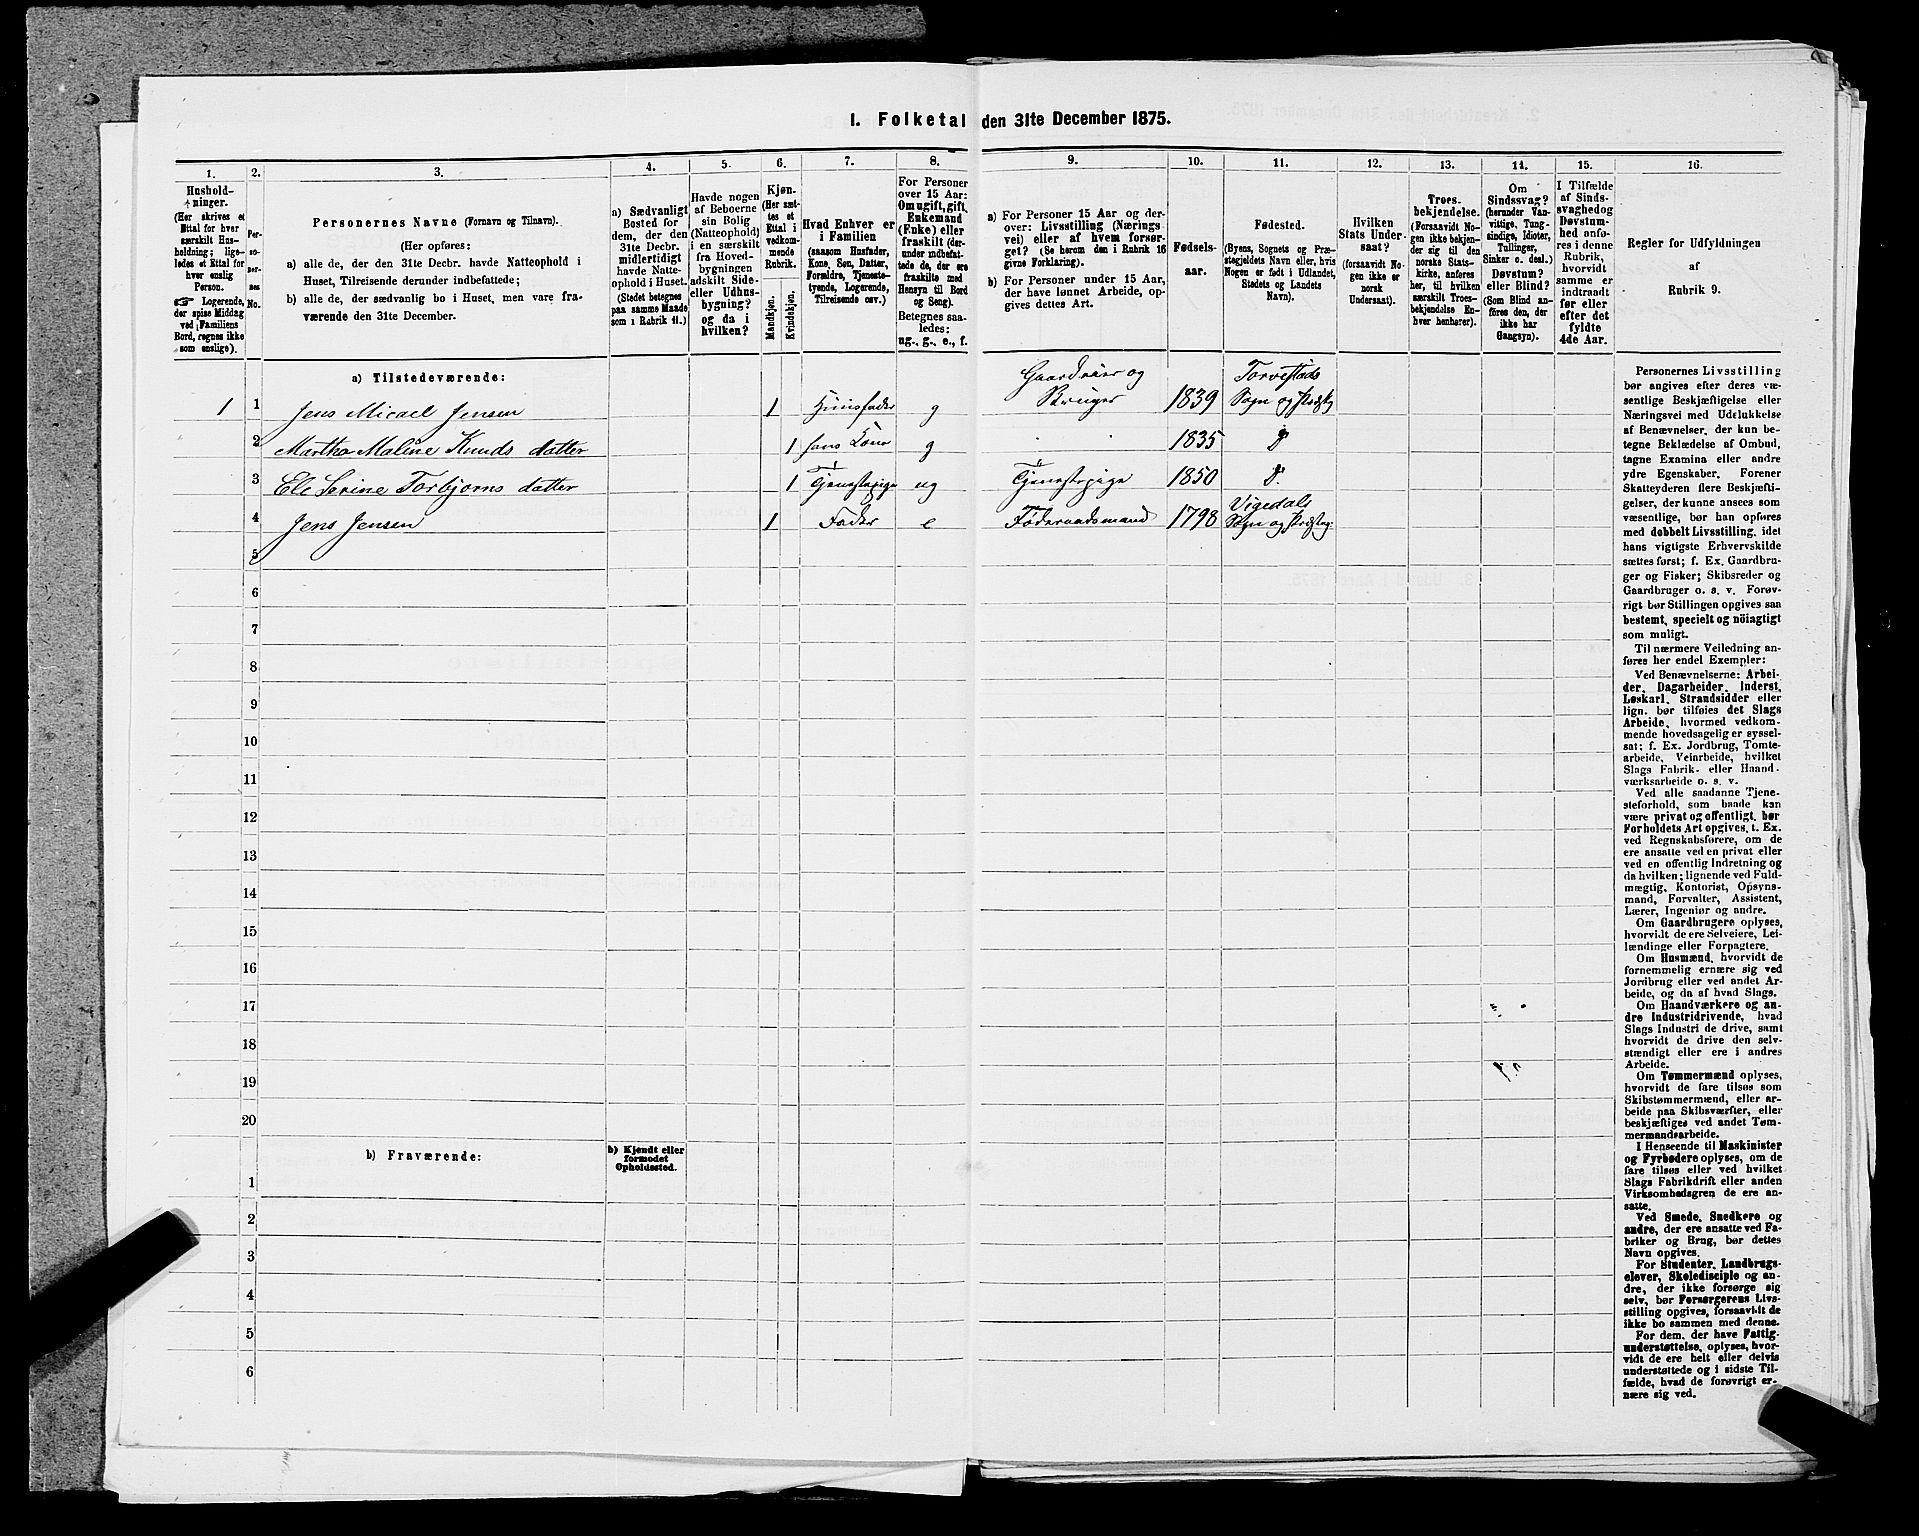 1. Folketal den 31te December 1875.
1. 2. 3. 4. 5. 6. 7. 8. 9. 10. 11. 12. 13. 14. 15. 16.
Hushold-
ninger.
(Her skrives et
Ettal for hver
særskilt Hus-
holdning; lige-
ledes et Ettal for
hver enslig
Person.
☞ Logerende,
der spise Middag
ved Familiens
Bord, regnes ikke
som enslige).
Per-
so-
ner-
nes
No.
Personernes Navne (Fornavn og Tilnavn).
(Her opføres:
a) alle de, der den 31te Decbr. havde Natteophold i
Huset, Tilreisende derunder indbefattede;
b) alle de, der sædvanlig bo i Huset, men vare fra-
værende den 31te December.
a) Sædvanligt
Bosted for
dem, der den
31te Decbr.
midlertidigt
havde Natte-
ophold i Huset.
(Stedet betegnes
paa samme Maade
som i Rubrik 11.)
Havde nogen
af Beboerne
sin Bolig
(Natteophold)
i en særskilt
fra Hoved-
bygningen
adskilt Side-
eller Udhus-
bygning?
og da i
hvilken?
Kjøn.
(Her sæt-
tes et
Ettal i
vedkom-
mende
Rubrik.
Mandkjøn.
Kvindekjøn.
Hvad Enhver er
i Familien
(saasom Husfader,
Kone, Søn, Datter,
Forældre, Tjeneste-
tyende, Logerende,
Tilreisende osv.)
For Personer
over 15 Aar:
Om ugift, gift,
Enkemand
(Enke) eller
fraskilt (der-
under indbefat-
tede de, der ere
fraskilte med
Hensyn til Bord
og Seng).
Betegnes saa-
ledes:
ug., g., e., f.
a) For Personer 15 Aar og der-
over: Livsstilling (Nærings-
vei) eller af hvem forsør-
get? (Se herom den i Rubrik 16
givne Forklaring).
b) For Personer under 15 Aar,
der have lønnet Arbeide, op-
gives dettes Art.
Fødsels-
aar.
Fødested.
(Byens, Sognets og Præ-
stegjeldets Navn eller, hvis
Nogen er født i Udlandet,
Stedets og Landets
Navn).
Hvilken
Stats Under-
saat?
(forsaavidt No-
gen ikke er
norsk
Undersaat).
Troes-
bekjendelse.
(Forsaavidt No-
gen ikke bekjen-
der sig til den
norske Stats-
kirke, anføres
her, til hvilken
særskilt Troes-
bekjendelse En-
hver henhører).
Om
Sindssvag?
(herunder Van-
vittige, Tung-
sindige, Idioter,
Tullinger,
Sinker o. desl.)
Døvstum?
eller Blind?
(Som Blind an-
føres den, der
ikke har
Gangsyn).
I Tilfælde
af Sinds-
svaghed og
Døvstum-
hed anfø-
res i denne
Rubrik,
hvorvidt
samme er
indtraadt
før eller
efter det
fyldte
4de Aar.
Regler for Udfyldningen
af
Rubrik 9.
a) Tilstedeværende:
1 1 Jens Micael Jensen 1 Huusfader g Gaardeier og Bruger 1839 Torvestads Sogn og Præstg
2 Martha Maline Knuds datter 1 hans Kone g 1835 D
3 Ele Serine Torbjørns datter 1 Tjenestepige ug Tjenestepige 1850 D.
4 Jens Jensen 1 Fader e Føderaadsmand 1798 Vigedals Sogn og Præstg:
5
6
7
8
9
10
11
12
13
14
15
16
17
18
19
20
b) Fraværende:
b) Kjendt eller
formodet
Opholdssted.
1
2
3
4
5
6
Personernes Livsstilling
bør angives efter deres væ-
sentlige Beskjæftigelse eller
Næringsvei med Udelukkelse
af Benævnelser, der kun be-
tegne Beklædelse af Ombud,
tagne Examina eller andre
ydre Egenskaber. Forener
Skatteyderen flere Beskjæfti-
gelser, der kunne ansees som
væsentlige, bør han opføres
med dobbelt Livsstilling, idet
hans vigtigste Erhvervskilde
sættes først; f. Ex. Gaardbru-
ger og Fisker; Skibsreder og
Gaardbruger o. s. v. Forøv-
rigt bør Stillingen opgives saa
bestemt, specielt og nöiagtigt
som muligt.
Til nærmere Veiledning an-
føres her endel Exempler:
Ved Benævnelserne: Arbei-
der, Dagarbeider, Inderst,
Løskarl, Strandsidder eller
lign. bør tilføies det Slags
Arbeide, hvormed vedkom-
mende hovedsagelig er syssel-
sat; f. Ex. Jordbrug, Tomte-
arbeide, Veinrbeide, hvilket
Slags Fabrik- eller Haand-
værksarbeide o. s. v.
Ved alle saadanne Tjene-
steforhold, som baade kan
være privat og offentligt, bør
Forholdets Art opgives, t. Ex.
ved Regnskabsførere, om de
ere ansatte ved en privat eller
ved en offentlig Indretning og
da hvilken; lignende ved Fuld-
mægtig, Kontorist, Opsyns-
mand, Forvalter, Assistent,
Lærer, Ingeniør og andre.
Om Gaardbrugere oplyses,
hvorvidt de ere Selveiere, Lei-
lændinge eller Forpagtere.
Om Husmænd, hvorvidt de
fornemmelig ernære sig ved
Jordbrug eller ved andet Ar-
beide, og da af hvad Slags.
Om Haandværkere og an-
dre Industridrivende, hvad
Slags Industri de drive, samt
hvorvidt de drive den selv-
stændigt eller ere i andres
Arbeide.
Om Tømmermænd oplyses,
hvorvidt de fare tilsøs som
Skibstømmermænd, eller ar-
beide paa Skibsværfter, eller
beskjæftiges ved andet Tøm-
mermandsarbeide.
I Henseende til Maskinister
og Fyrbødere oplyses, om de
fare tilsøs eller ved hvilket
Slags Fabrikdrift eller anden
Virksomhedsgren de ere an-
satte.
Ved Smede, Snedkere og
andre, der ere ansatte ved Fa-
briker og Brug, bør dettes
Navn opgives.
For Studenter, Landbrugs-
elever, Skoledisciple og an-
dre, der ikke forsørge sig
selv, bør Forsørgerens Livs-
stilling opgives, forsaavidt de
ikke bo sammen med denne.
For dem, der have Fattig-
understøttelse, oplyses, hvor-
vidt de ere helt eller delvis
understøttede og i sidste Til-
fælde, hvad de forøvrigt er-
nære sig ved.